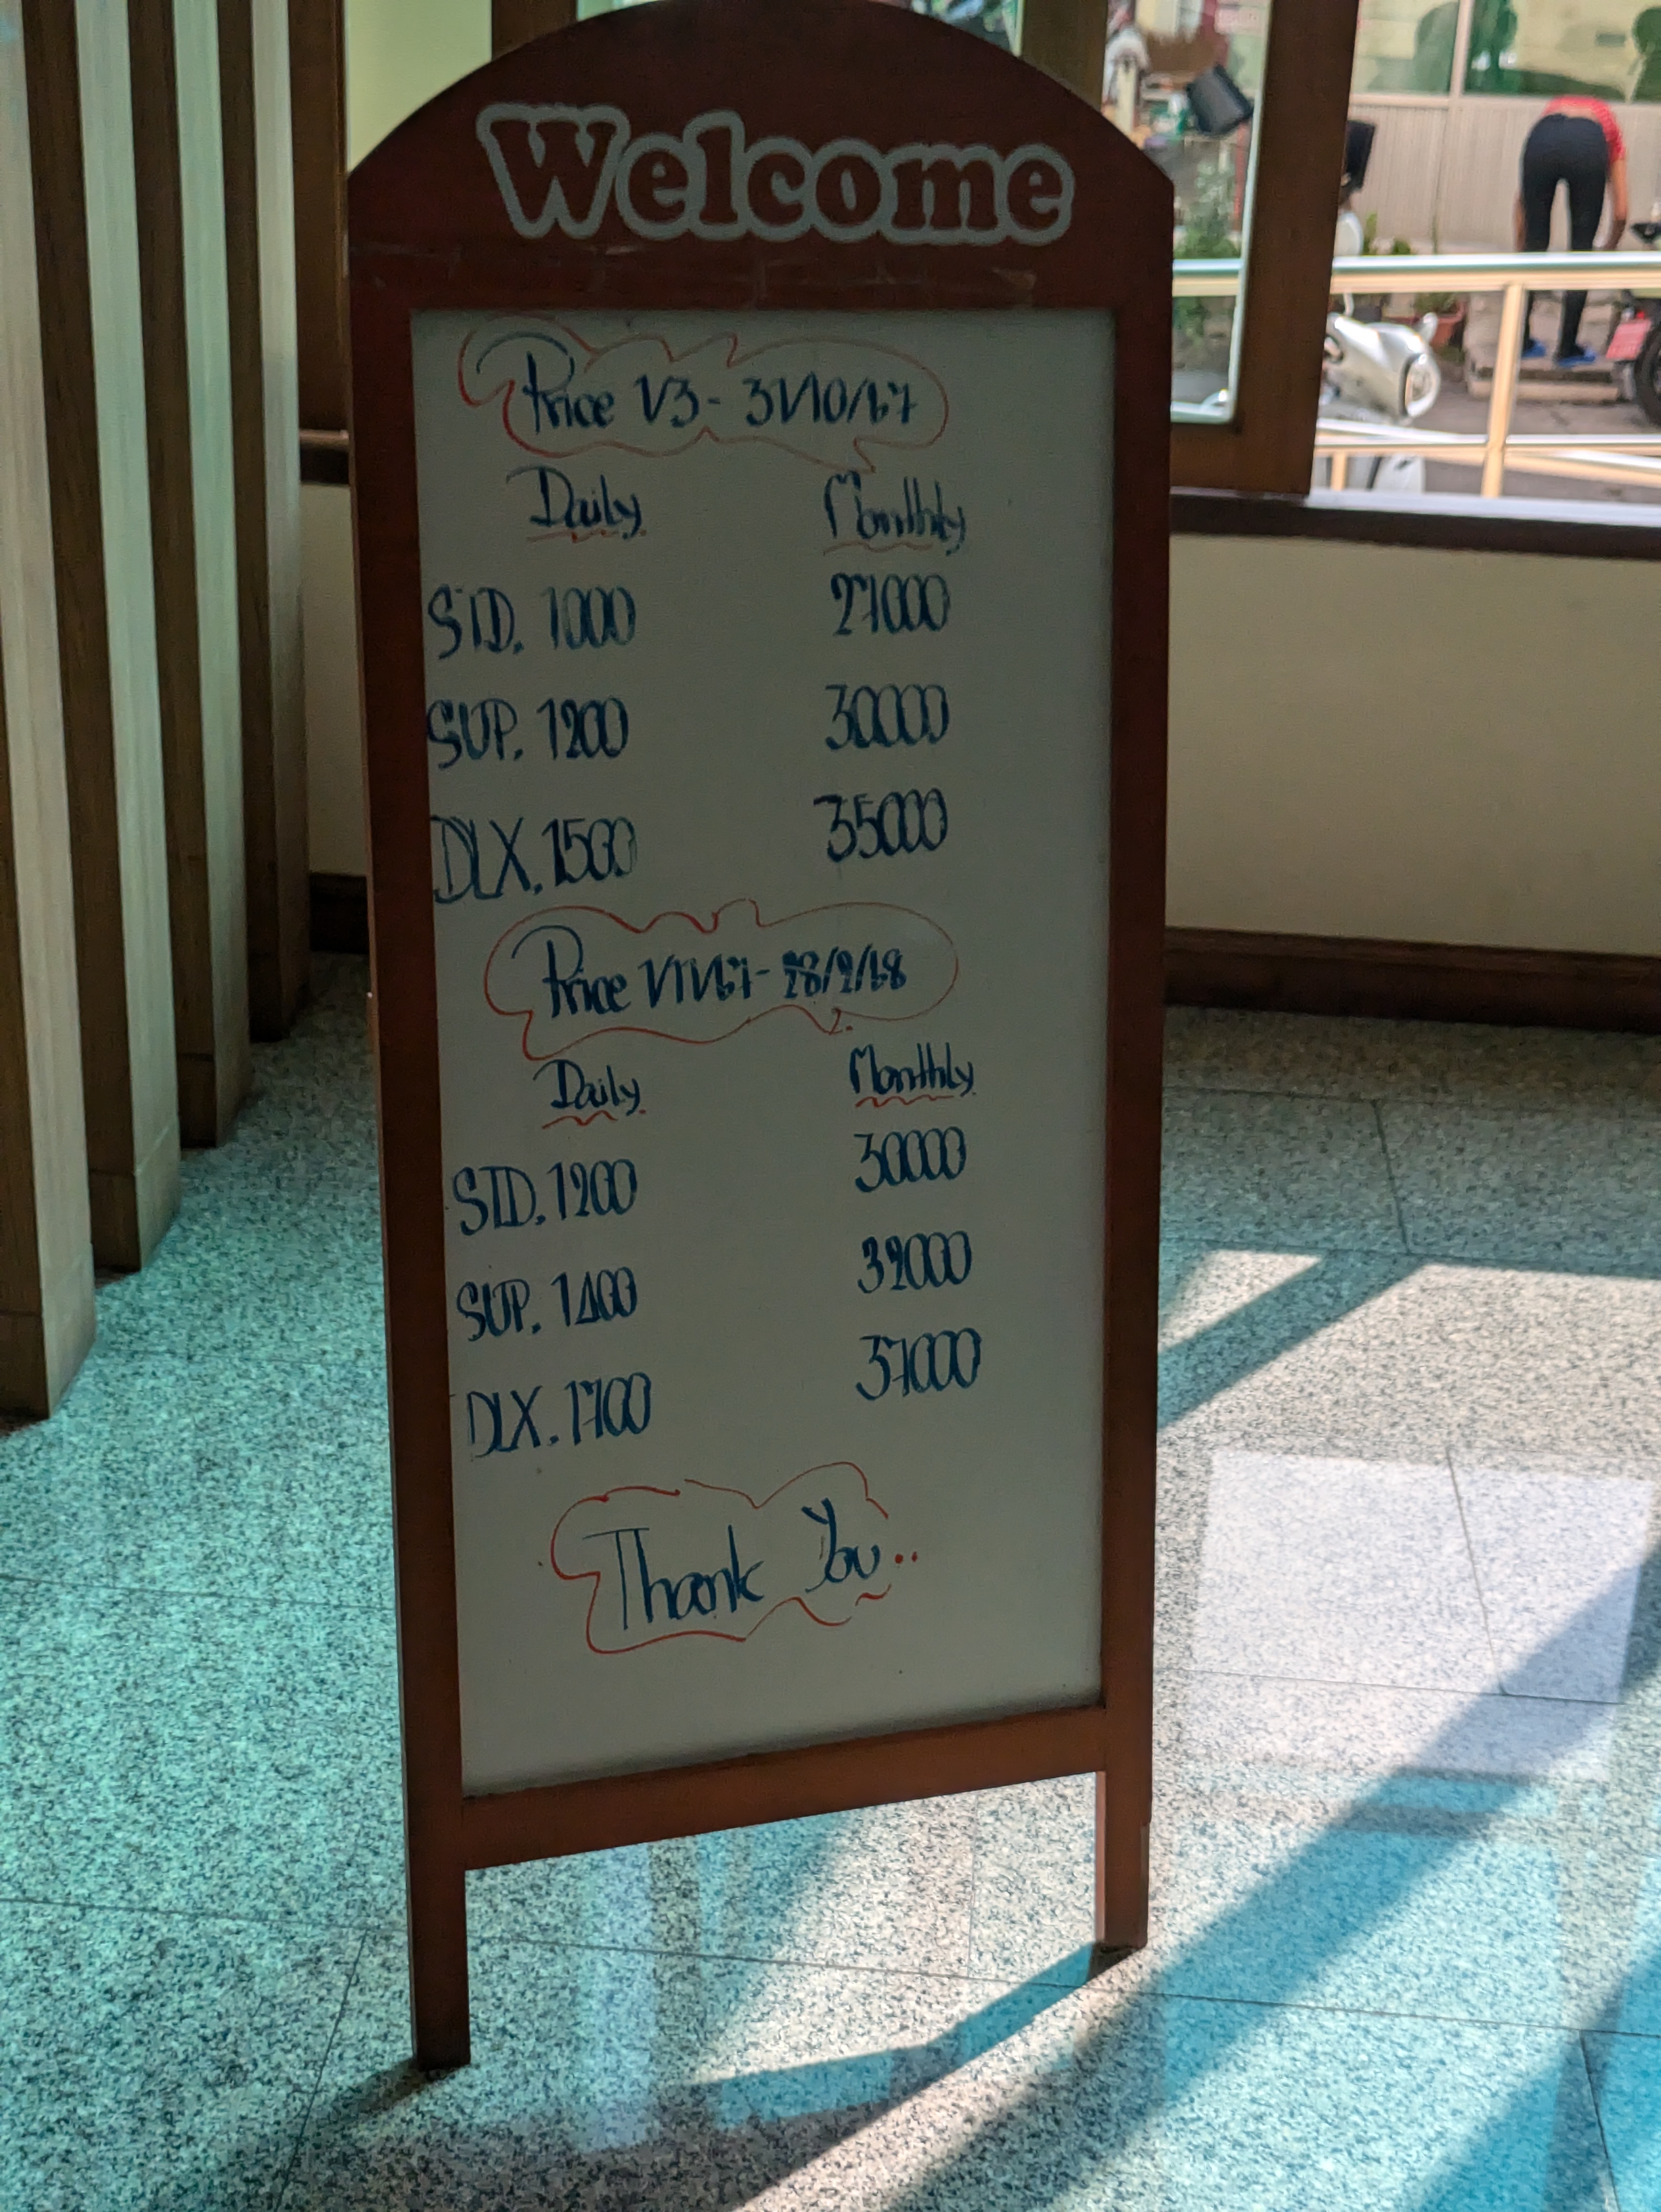 Welcome
Price 1/3 - 31/10/67
Daily Monthly
STD. 1000 27000
SUP. 1200 30000
DLX. 1500 35000
Price 1/11/67 - 28/2/68
Daily Monthly
STD. 1200 30000
SUP. 1400 32000
DLX. 1700 37000
Thank You..